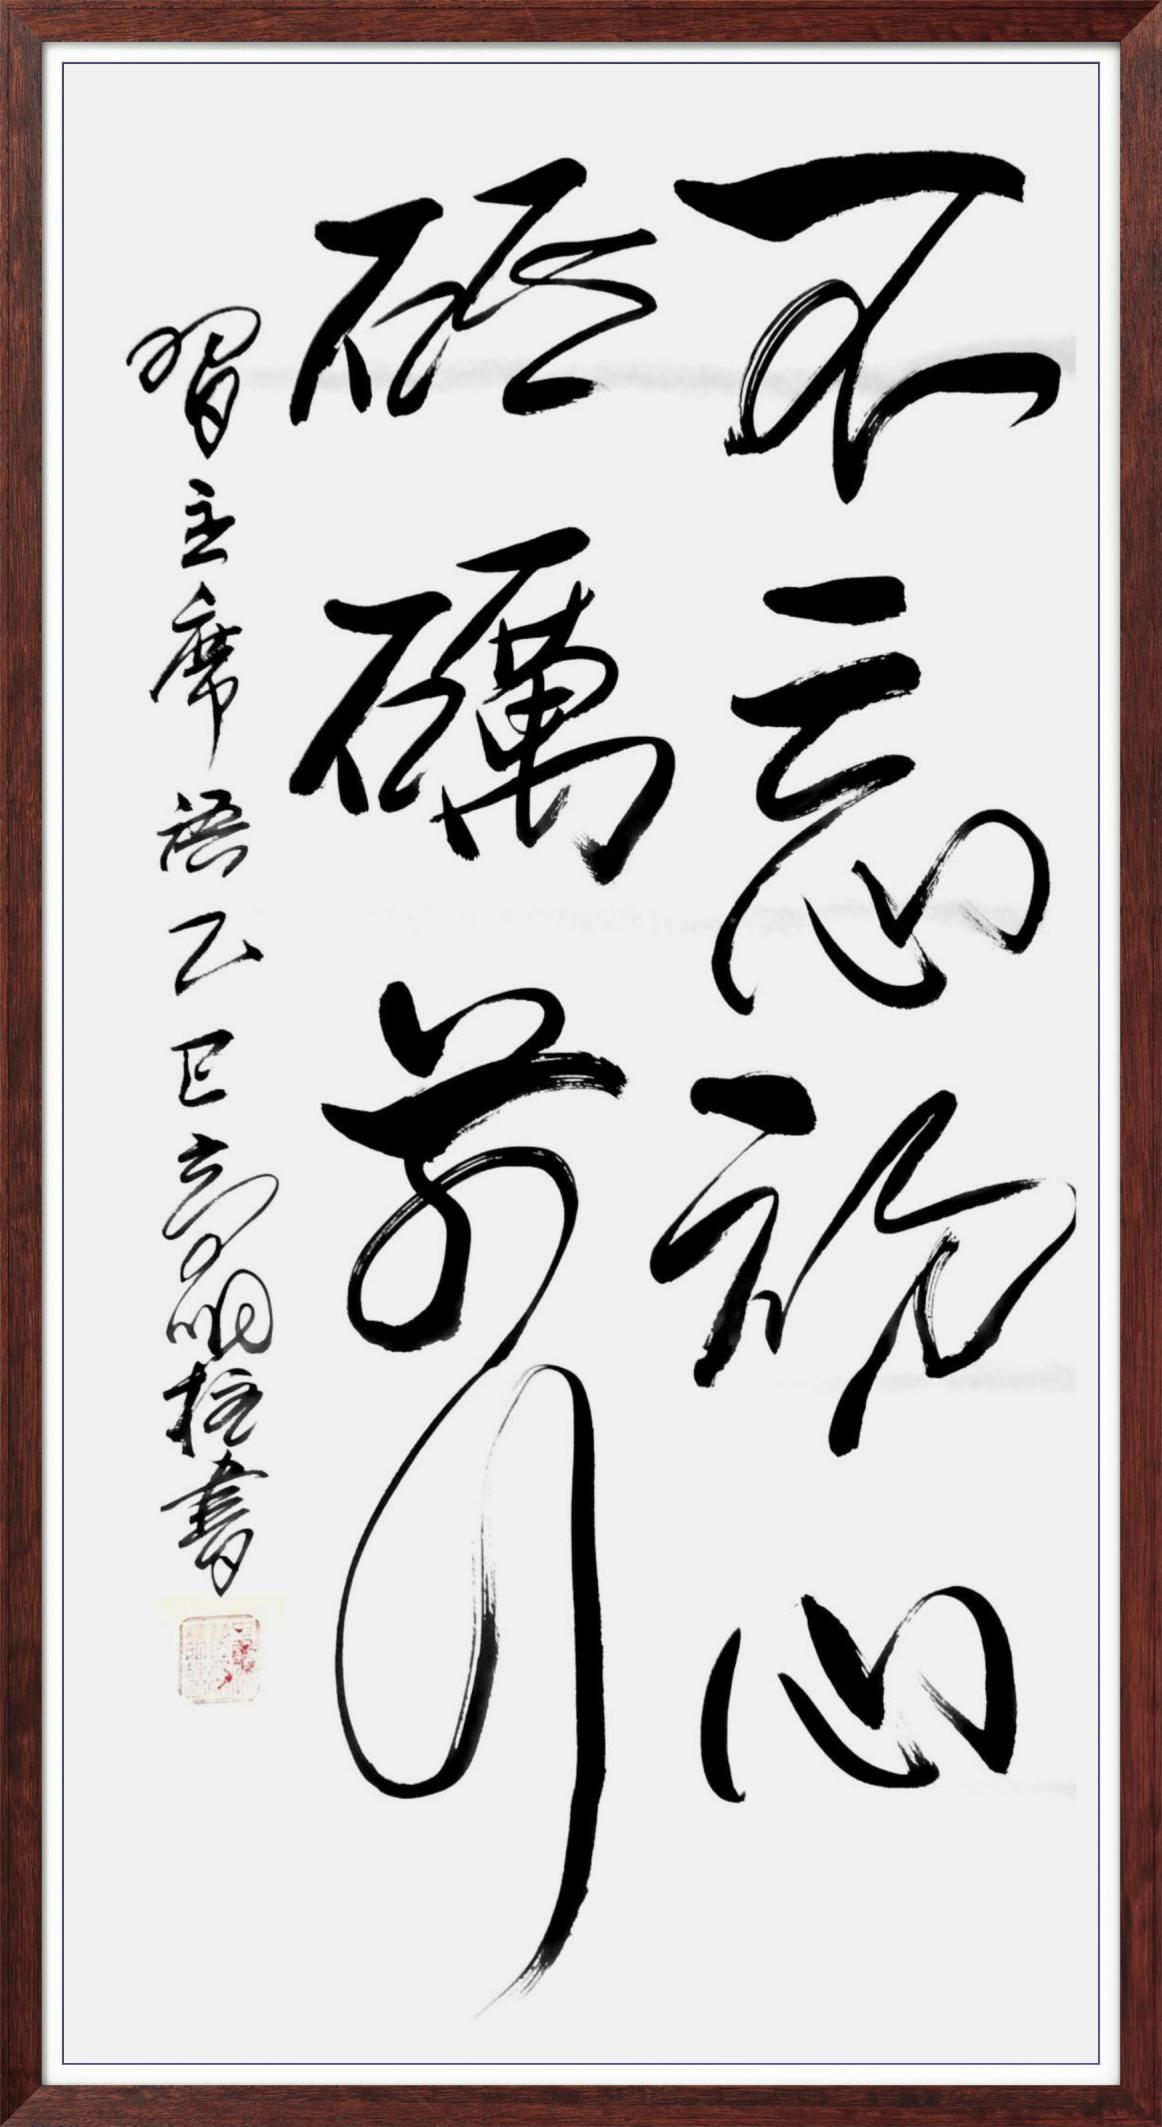 不忘初心
砥礪前行
習主席語乙巳高明柱書